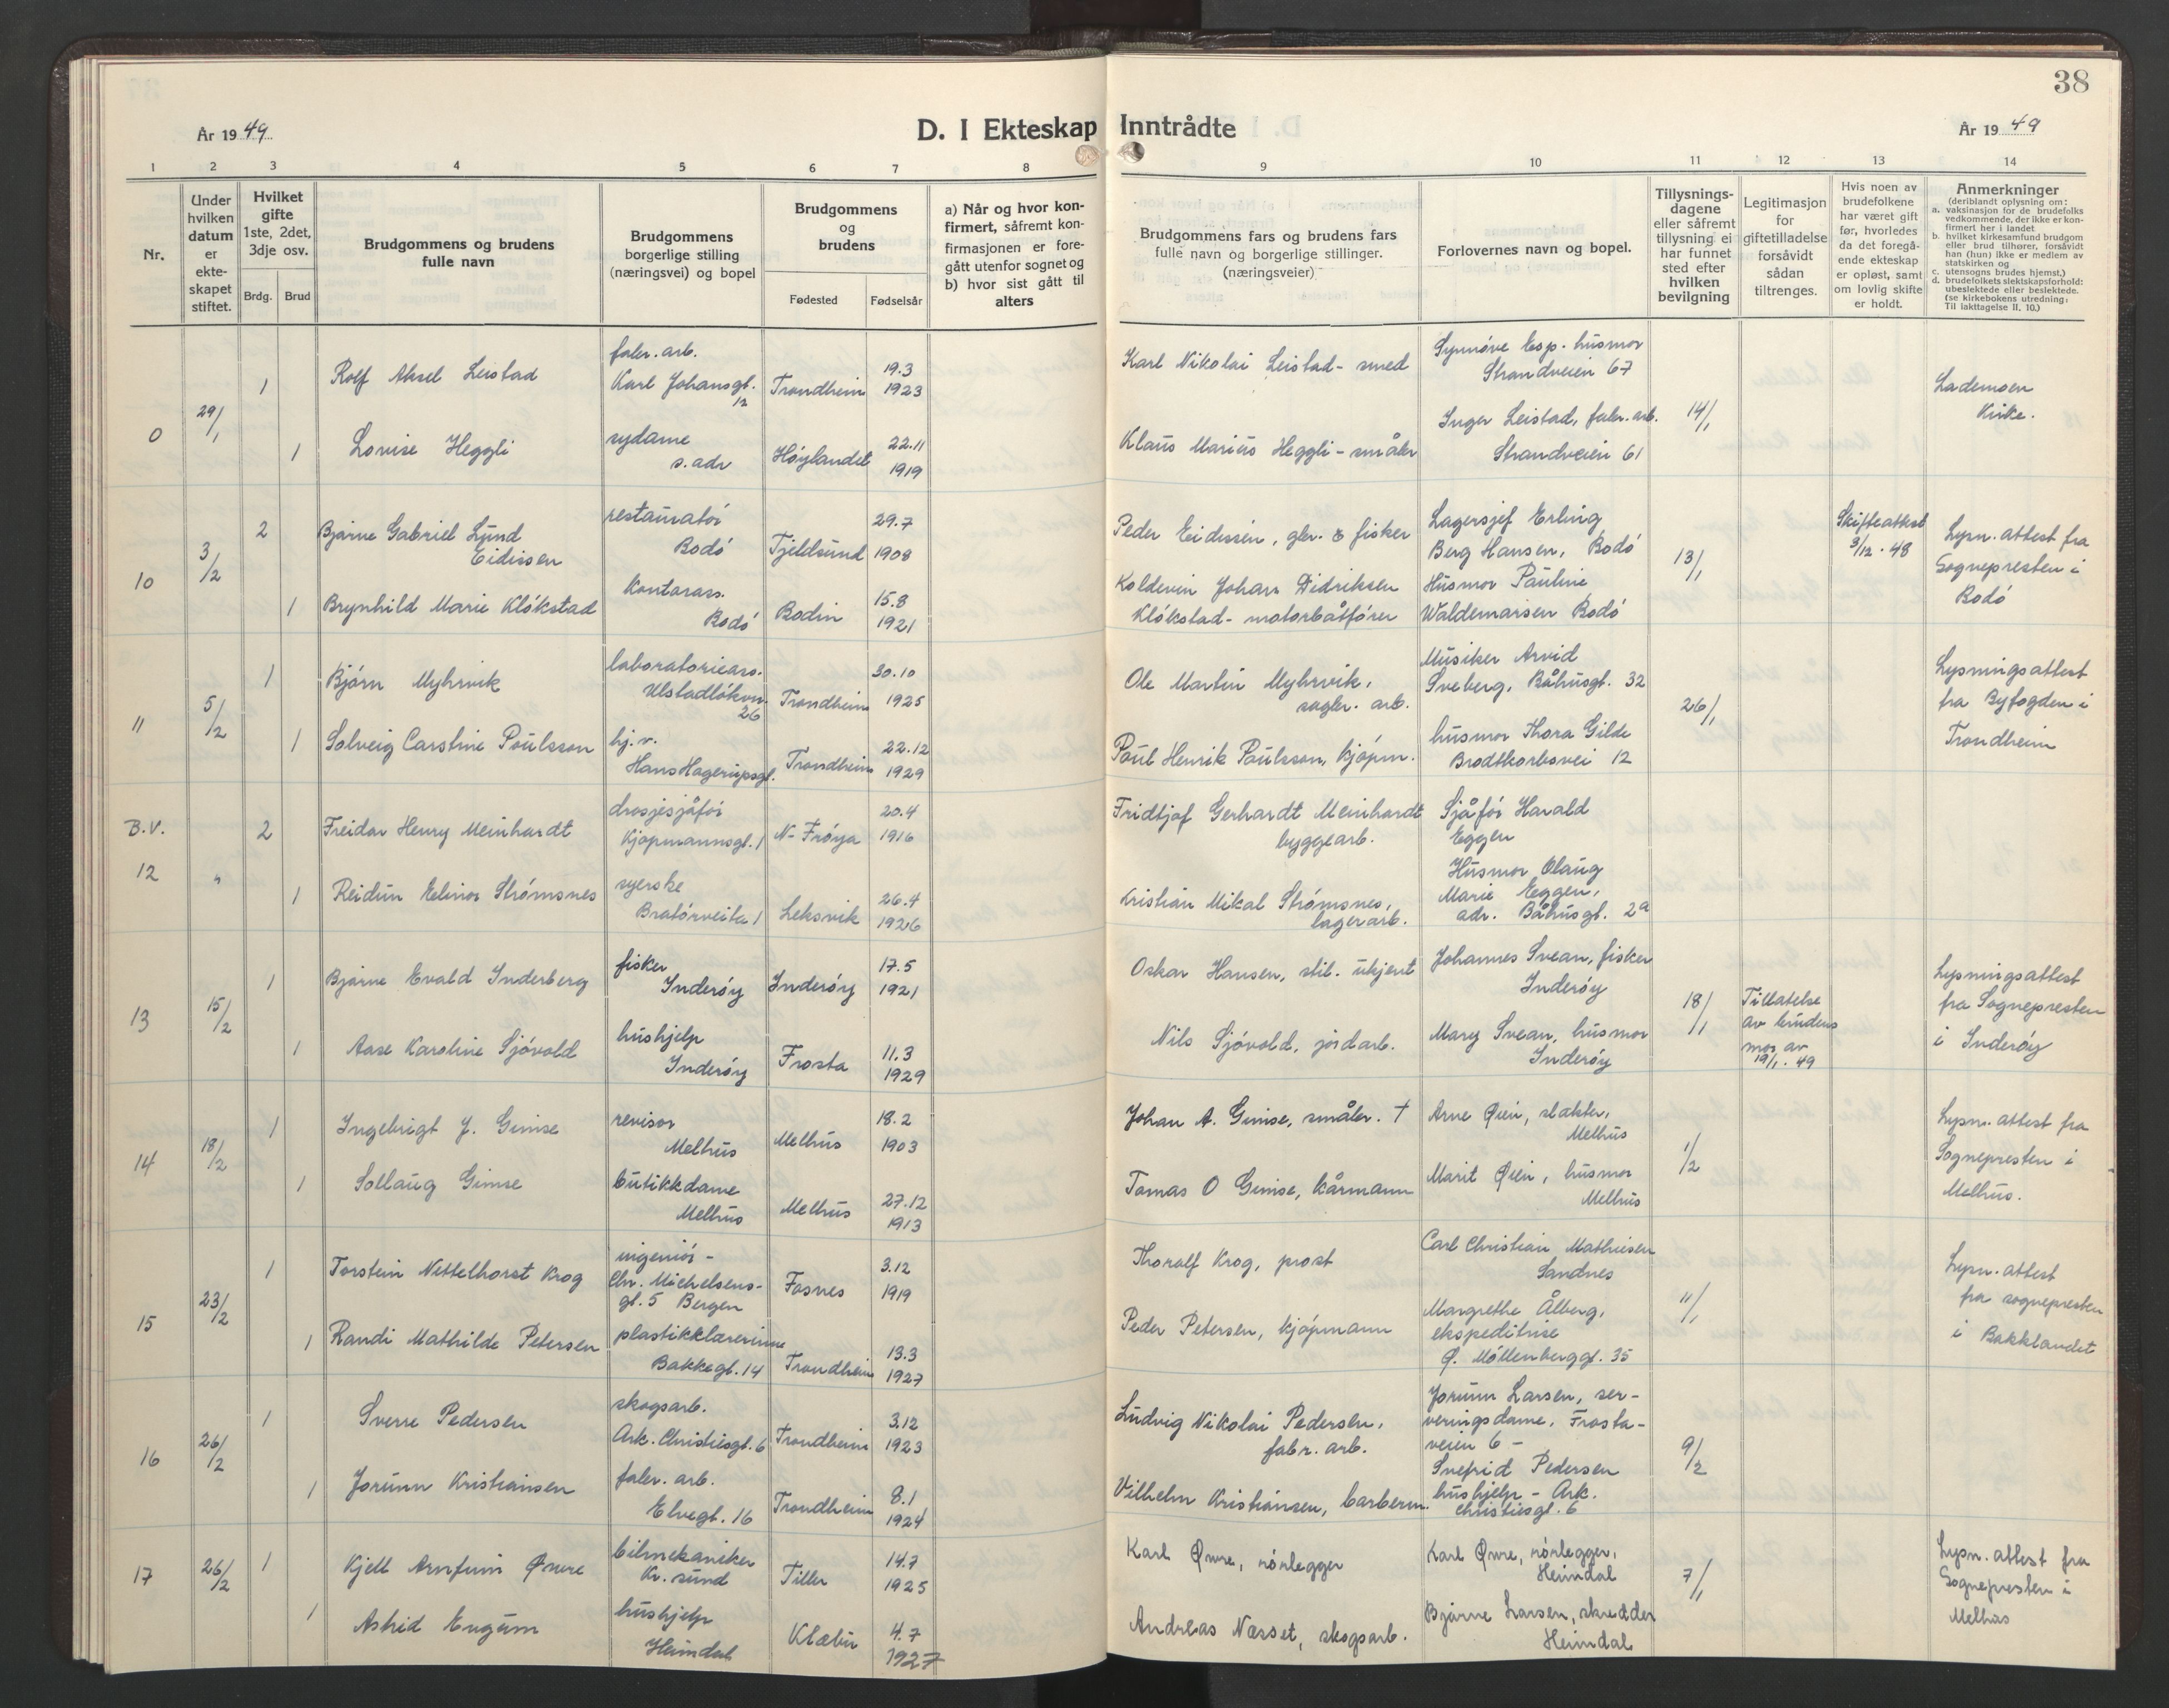 38
År 1949
D. I Ekteskap Inntrådte
År 1949
1 2 3 4 5 6 7 8 9 10 11 12 13 14
Nr.
Under hvilken datum er ekte-skapet stiftet.
Hvilket gifte 1ste, 2det, 3dje osv.
Brdg.
Brud
Brudgommens og brudens fulle navn
Brudgommens borgerlige stilling (næringsvei) og bopel
Brudgommens og brudens
Fødested
Fødselsår
a) Når og hvor kon-firmert, såfremt kon-firmasjonen er fore-gått utenfor sognet og b) hvor sist gått til alters
Brudgommens fars og brudens fars fulle navn og borgerlige stillinger. (næringsveier)
Forlovernes navn og bopel.
Tillysnings-dagene eller såfremt tillysning ei har funnet sted efter hvilken bevilgning
Legitimasjon for giftetilladelse forsåvidt sådan tiltrenges.
Hvis noen av brudefolkene har været gift før, hvorledes da det foregå-ende ekteskap er opløst, samt om lovlig skifte er holdt.
Anmerkninger
(deriblandt oplysning om:
a. vaksinasjon for de brudefolks vedkommende, der ikke er kon-firmert her i landet
b. hvilket kirkesamfund brudgom eller brud tilhører, forsåvidt han (hun) ikke er medlem av statskirken og
c. utensogns brudes hjemst.)
d. brudefolkets slektskapsforhold: ubeslektede eller beslektede.
(se kirkebokens utredning: Til iakttagelse II. 10.)
0 29/1
1 Rolf Aksel Leistad
fabr. arb.
Karl Johansgt. 12
Trondheim 19.3 1923
Karl Nikolai Leistad - smed
Synnöve Esp. husmor
Strandveien 67
14/1
Lademoen Kirke.
1 Lovise Heggli
sydame
s. adr
Höylandet 22.11 1919
Klaus Marius Heggli - småbr
Inger Leistad, fabr. arb.
Strandveien 61
10 3/2
2 Bjarne Gabriel Lund Eidissen
restauratör
Bodö
Tjeldsund 29.7 1908
Peder Eidissen, gbr. & fisker
Lagersjef Erling
Berg Hansen, Bodö
13/1
Skifteattest
3/12. 48
Lysn. attest fra
Sognepresten i
Bodö
1 Brynhild Marie Klökstad
kontorass.
Bodö
Bodin 15.8 1921
Koldevin Johan Didriksen
Klökstad - motorbåtförer
Husmor Pauline
Waldemarsen Bodö
11 5/2
1 Björn Myhrvik
laboratorieass.
Ulstadlökvn. 26
Trondheim 30.10 1925
Ole Martin Myhrvik,
sagbr. arb.
Musiker Arvid
Sveberg, Båhusgt. 32
26/1
Lysningsattest
fra Byfogden i
Trondheim
1 Solveig Carstine Poulsson
hj. v.
Hans Hagerupsgt.
Trondheim 22.12 1929
Poul Henrik Poulsson, kjöpm.
husmor Thora Gilde
Brodtkorbsvei 12
B.V.
12 "
2 Freidar Henry Meinhardt
drosjesjåför
Kjöpmannsgt. 1
N- Fröya 20.4 1916
Fridtjof Gerhardt Meinhardt
byggearb.
Sjåför Harald
Eggen
1 Reidun Elinor Strömsnes
syerske
Bratörveita 1
Leksvik 26.4 1926
Kristian Mikal Strömsnes,
lagerarb.
Husmor Olaug
Marie Eggen,
adr. Båhusgt. 2a
13 15/2
1 Bjarne Evald Inderberg
fisker
Inderöy
Inderöy 17.5 1921
Oskar Hansen, stil. ukjent
Johannes Svean, fisker
Inderöy
18/1
Tillatelse
av brudens
mor av
19/1. 49
Lysningsattest
fra Sognepresten
i Inderöy
1 Aase Karoline Sjövold
hushjelp
Inderöy
Frosta 11.3 1929
Nils Sjövold, jordarb.
Mary Svean, husmor
Inderöy
14 18/2
1 Ingebrigt J. Gimse
revisor
Melhus
Melhus 18.2 1903
Johan A. Gimse, småbr. †
Arne Øien, slakter,
Melhus
1/2
Lysn. attest fra
Sognepresten i
Melhus.
1 Sollaug Gimse
butikkdame
Melhus
Melhus 27.12 1913
Tomas O Gimse, kårmann
Marit Øien, husmor
Melhus
15 23/2
1 Torstein Nettelhorst Krog
ingeniör -
Chr. Michelsens-
gt. 5 Bergen
Fosnes 3.12 1919
Thoralf Krog, prost
Carl Christian Mathiesen
Sandnes
11/1
Lysn. attest
fra sognepresten
i Bakklandet
1 Randi Mathilde Petersen
plastikklærerinne
Bakkegt. 14
Trondheim 13.3 1927
Peder Petersen, kjöpmann
Margrethe Ålberg,
ekspeditrise
Ø. Möllenberggt. 35
16 26/2
1 Sverre Pedersen
skogsarb.
Ark. Christiesgt. 6
Trondheim 3.12 1923
Ludvig Nikolai Pedersen,
fabr. arb.
Jorunn Larsen, ser-
veringsdame, Frosta-
veien 6 -
9/2
1 Jorunn Kristiansen
fabr. arb.
Elvegt. 16
Trondheim 8.1 1924
Vilhelm Kristiansen, barberm.
Snefrid Pedersen
hushjelp - Ark.
Christiesgt. 6
17 26/2
1 Kjell Arnfinn Øwre
bilmekaniker
Kr. sund
Tiller 14.7 1925
Karl Øwre, rörlegger
Karl Øwre, rörlegger,
Heimdal
7/1
Lysn. attest fra
Sognepresten i
Melhus
1 Astrid Engum
hushjelp
Heimdal
Klæbu 4.7 1927
Andreas Næsset, skogsarb.
Bjarne Larsen, skredder
Heimdal